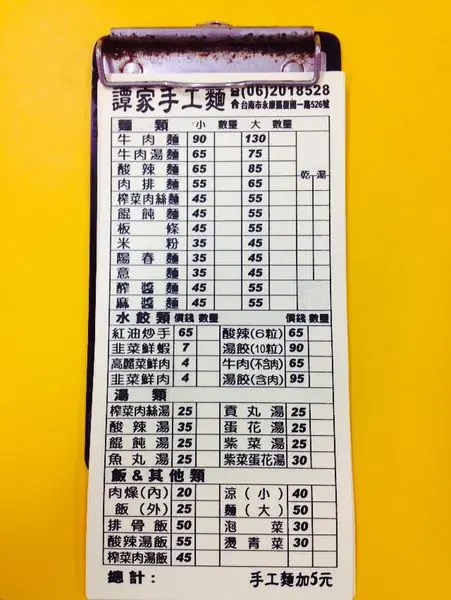 譚家手工麵 ☎(06)2018528
台南市永康區復國一路526號
麵類 小 數量 大 數量
牛肉麵 90 130
牛肉湯麵 65 75
酸辣麵 65 85 乾 湯
肉排麵 55 65
榨菜肉絲麵 45 55
餛飩麵 45 55
板條 45 55
米粉 35 45
陽春麵 35 45
意麵 35 45
醡醬麵 45 55
麻醬麵 45 55
水餃類 價錢 數量 價錢 數量
紅油炒手 65 酸辣(6粒) 65
韭菜鮮蝦 7 湯餃(10粒) 90
高麗菜鮮肉 4 牛肉(不含肉) 65
韭菜鮮肉 4 湯餃(含肉) 95
湯類
榨菜肉絲湯 25 貢丸湯 25
酸辣湯 35 蛋花湯 25
餛飩湯 25 紫菜湯 25
魚丸湯 25 紫菜蛋花湯 30
飯&其他類
肉燥(內) 20 涼(小) 40
飯(外) 25 麵(大) 50
排骨飯 50 泡菜 30
酸辣湯飯 55 燙青菜 30
榨菜肉湯飯 45
總計: 手工麵加5元